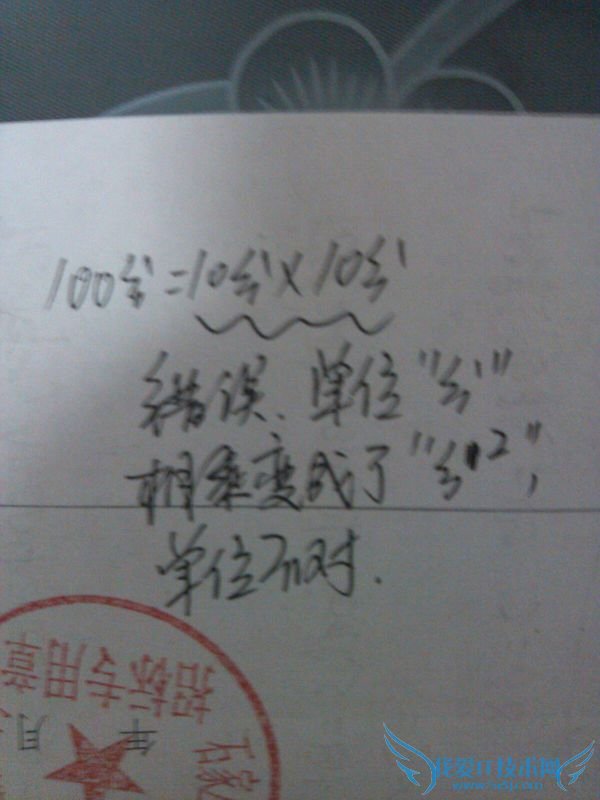 100分=10分×10分
错误、单位"分"
相乘变成了"分²",
单位不对.
招标专用章
石家
年 月
我爱IT技术网
www.52ij.com